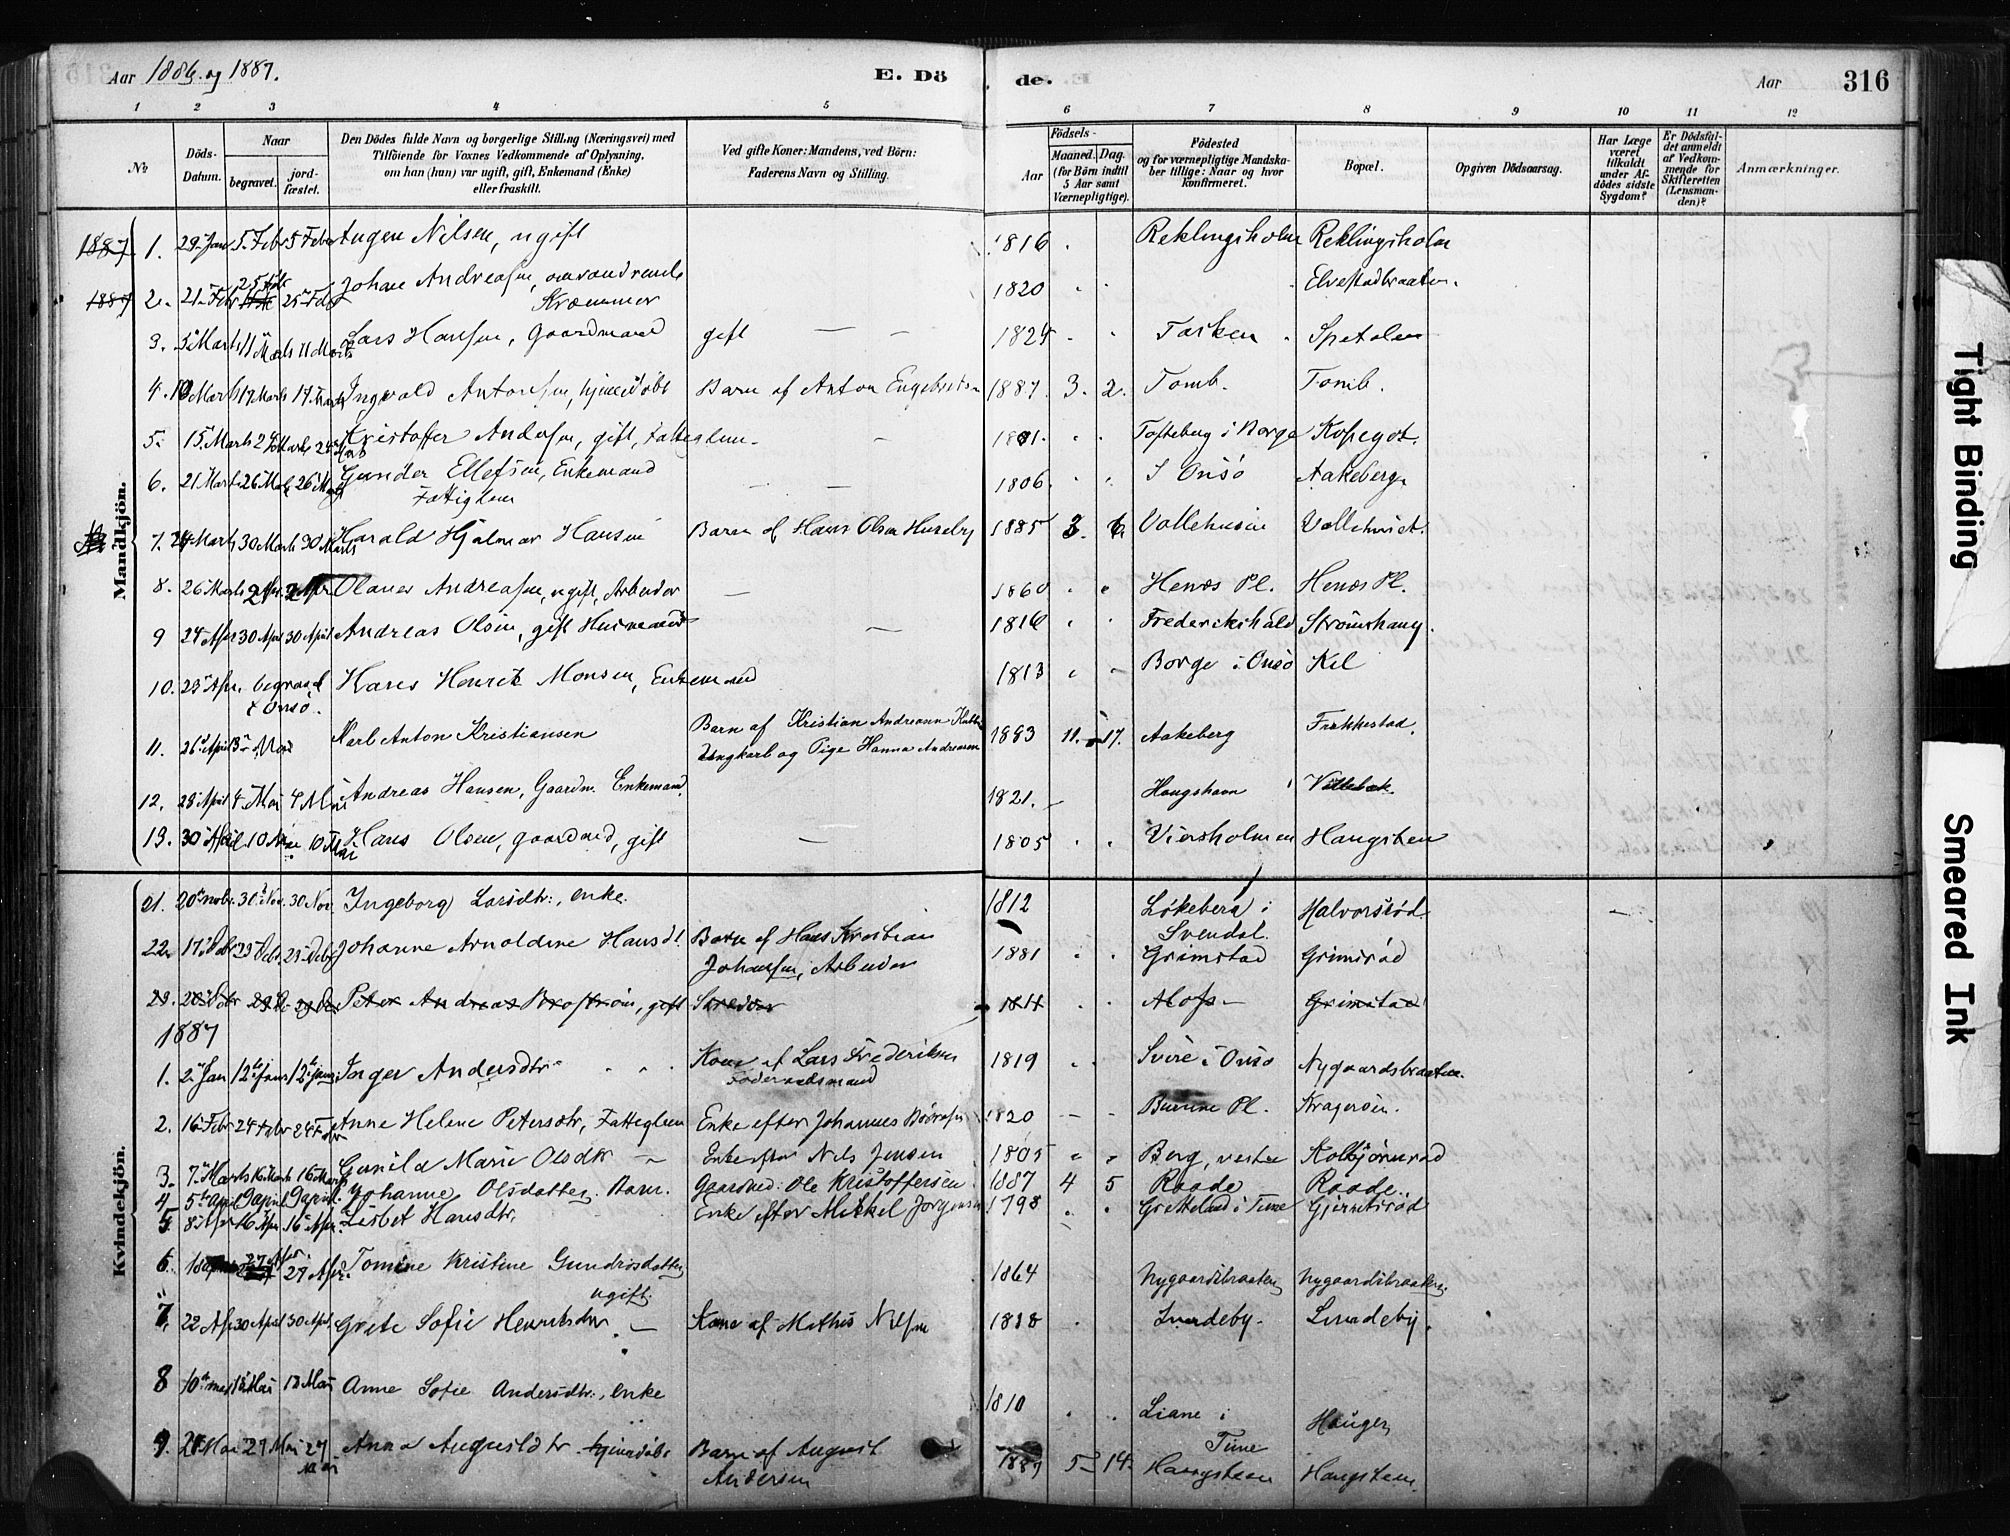 Aar 1886 og 1887.
E. Dö
de.
Aar
316
1 2 3 4 5 6 7 8 9 10 11 12
No
Döds-Datum.
Naar
begravet.
jord-fæstet.
Den Dödes fulde Navn og borgerlige Stilling (Næringsvei) med
Tilföiende for Voxnes Vedkommende af Oplysning,
om han (hun) var ugift, gift, Enkemand (Enke)
eller fraskilt.
Ved gifte Koner: Mandens, ved Börn:
Faderens Navn og Stilling.
Födsels-
Aar
Maaned. Dag.
(for Börn indtil
5 Aar samt
Værnepligtige).
Födested
og for værnepligtige Mandska-
ber tillige: Naar og hvor
konfirmeret.
Bopæl.
Opgiven Dödsaarsag.
Har Læge
været
tilkaldt
under Af-
dödes sidste
Sygdom?
Er Dödsfal-
det anmeldt
af Vedkom-
mende for
Skifteretten
(Lensman-
den)?
Anmærkninger.
Mandkjön.
1887 1. 29 Jan 5 Febr 5 Febr Nilsen, ugift 1816 Reklingsholm Reklingsholm
1887 2. 21 Febr 25 Feb 25 Feb Johan Andreasen, omvandrende 1820 Elvestadbraaten
Kræmmer
3. 5 Marts 11 Marts 11 Marts Lars Hansen, Gaardmand gift — — 1824 Tasken Spetalen
4. 10 Marts 17 Marts 17 Marts Ingvald Antonsen, hjemedöbt Barn af Anton Engebretsen 1887 3. 2. Tomb. Tomb.
5. 15 Marts 24 Marts 24 Marts Kristoffer Andersen, gift, Fattiglem — Tofteberg i Borge
6. 21 Marts 26 Marts 26 Marts Gunder Ellefsen, Enkemand — — 1806 I Onsö Aakeberg
Fattiglem
7. 24 Marts 30 Marts 30 Marts Harald Hjalmar Hansen Barn af Hans Olsen Huseby 1885 3. 6 Vallehuset Vallehuset.
8. 26 Marts 2 Apr. 2 Apr Olaues Andreasen, ugift, Arbeider — 1860 Henæs Pl. Henæs Pl.
9 24 Apr 30 Apr 30 April Andreas Olsen, gift Husmand — 1816 Frederikshald Strömshaug.
10. 23 Apr. begraved Hans Henrik Monsen, Enkemand 1813 Borge i Onsö Kil
i Onsö.
11. 26 April 3 Mai Karl Anton Kristiansen Barn af Kristian Andreasen
Ungkarl og Pige Hanna Andreasen 1883 11. 17. Aakeberg Frakkestad.
12. 28 April 4 Mai 4 Mai Andreas Hansen, Gaardm. Enkemand. 1821. Haugshavn Villebæk
13. 30 April 10 Mai 10 Mai Hans Olsen, gaardmd, gift — 1805 Viersholmen Haugsten
Kvindekjön.
21. 20 novbr. 30 Nov. 30 Nov. Ingeborg Larsdtr., enke. 1812 Lökeberg i Halvorsröd
Svendal.
22. 17 Dcbr 23 Debr. 23 Debr Johanne Arnoldine Hansd. Barn af Hans Kristian 1881 Grimstad Grimsröd
Johansen, Arbeider
23. Peter Andreas Broström, gift Skrædder 1814 Alofs- Grimstad
1887
1. 2 Jan 12 Jan 12 Jan Inger Andersdtr Kone af Lars Frederiksen 1819 i Onsö Nygaardsbraaten.
Föderaadsmand
2. 16 Febr 24 Febr 24 Febr Anne Helene Petersdtr, Fattiglem Enke efter Johannes 1820 Pl. Kragerøen.
3. 7 Marts 16 Marts 16 Marts Gunild Marie Olsdtr — Enke efter Nils Jensen 1805 Berg, vestre Kolbjörnsröd
4 5 April 9 April 9 April. Johanne Olsdatter. Barn. Gaardmd: Ole Kristoffersen 1887 4 5 Raade Raade.
5 8 Apr 16 Apr 16 Apr. Lisbet Hansdtr, Enke efter Mikkel Jörgensen 1798 Gretteland i Tune Gjerretsröd
6. 18 27 Apr. 27 Apr. Tomine Kristine Gundersdatter 1864 Nygaardsbraaten Nygaardsbraaten.
ugift.
7. 22 Apr 30 April 30 April. Grete Sofie Henriksdtr — Kone af Mathis Nilsen 1818 Lundeby. Lundeby.
8 10 mai 18 Mai 18 Mai Anne Sofie Andersdtr., enke 1810 Liane i Hauger
Tune
9. 21 Mai 27 Mai 27 Mai Anna Augustdtr. hjemedöbt Barn af August 1887 5 14 Haugsteen Haugsteen.
Andersen
Tight Binding
Smeared Ink